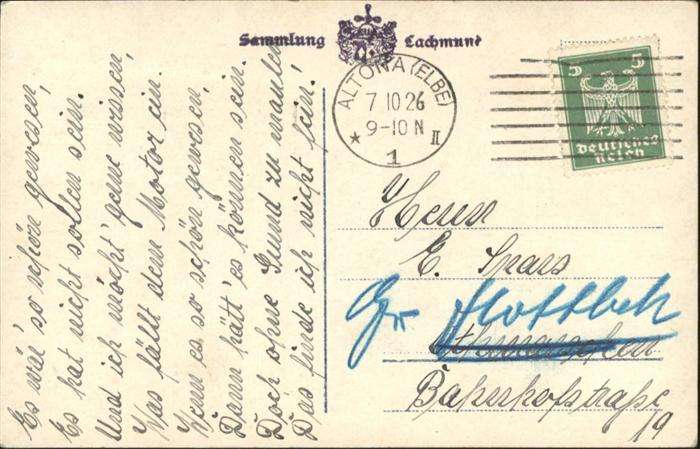 Sammlung Lachmund
ALTONA (ELBE)
7 10 26
9-10 N
* II
1
5 5
Deutsches
Reich
Es wär' so schön gewesen,
Es hat nicht sollen sein.
Und ich möcht' gerne wissen,
Was fällt dem Motor ein.
Wenn es so schön gewesen,
Dann hätt' es können sein.
Doch ohne Grund zu maulen
Das finde ich nicht fein!
Herrn
E. Spars
Gr Flottbek
Othmarschen
Bahnhofstraße
19